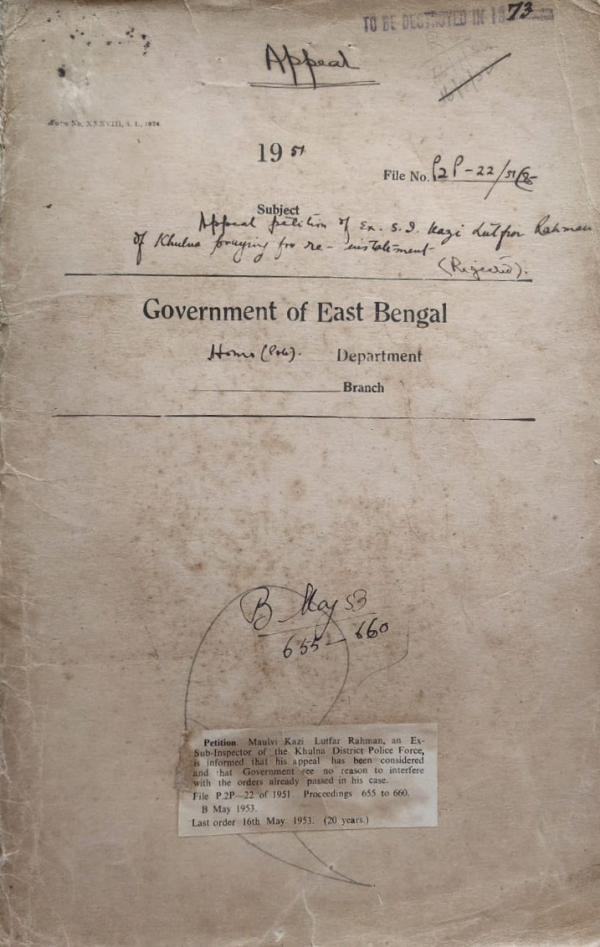 TO BE DESTROYED IN 1973
Appeal
Form No. XXXVIII, S. L., 1924
1951
File No. P2P-22/51
Subject
Appeal petition of Ex. S. I. Kazi Lutfor Rahman
of Khulna praying for re-instatement
(Rejected).
Government of East Bengal
Home (Pol). Department
Branch
B May 53
655-660
Petition Maulvi Kazi Lutfar Rahman, an Ex-
Sub-Inspector of the Khulna District Police Force,
is informed that his appeal has been considered
and that Government see no reason to interfere
with the orders already passed in his case.
File P.2P—22 of 1951. Proceedings 655 to 660.
B May 1953.
Last order 16th May 1953. (20 years.)